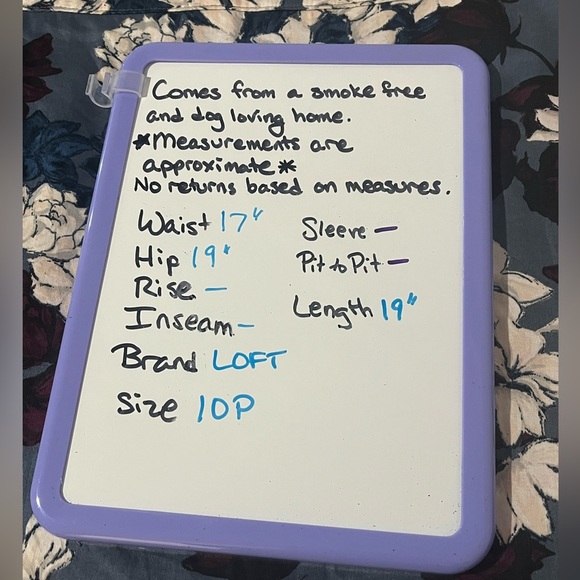 Comes from a smoke free
and dog loving home.
*Measurements are
approximate*
No returns based on measures.
Waist 17"
Hip 19"
Rise –
Inseam –
Sleeve –
Pit to Pit –
Length 19"
Brand LOFT
Size 10P